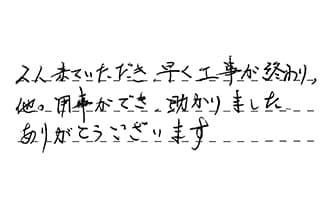 2人来ていただき、早く工事が終わり、
他の用事ができ、助かりました
ありがとうございます